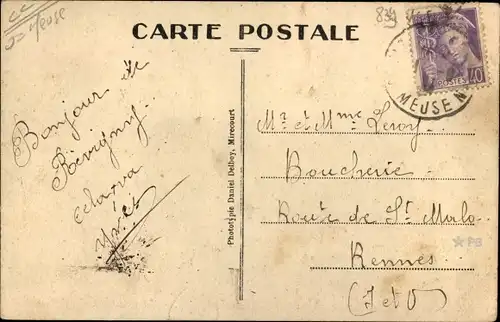 CC
Meuse
CARTE POSTALE
839
POSTES
40
MEUSE
Bonjour de
Révigny
Yves
Phototypie Daniel Delboy, Mirecourt
Mr et Mme Leroy
Boucherie
Route de St Malo
Rennes
(I et V)
★ PG